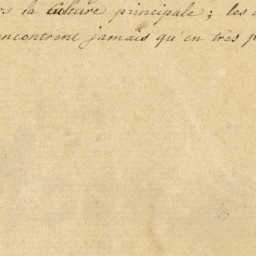 la Culture principale; les
encontrent jamais qu'en très